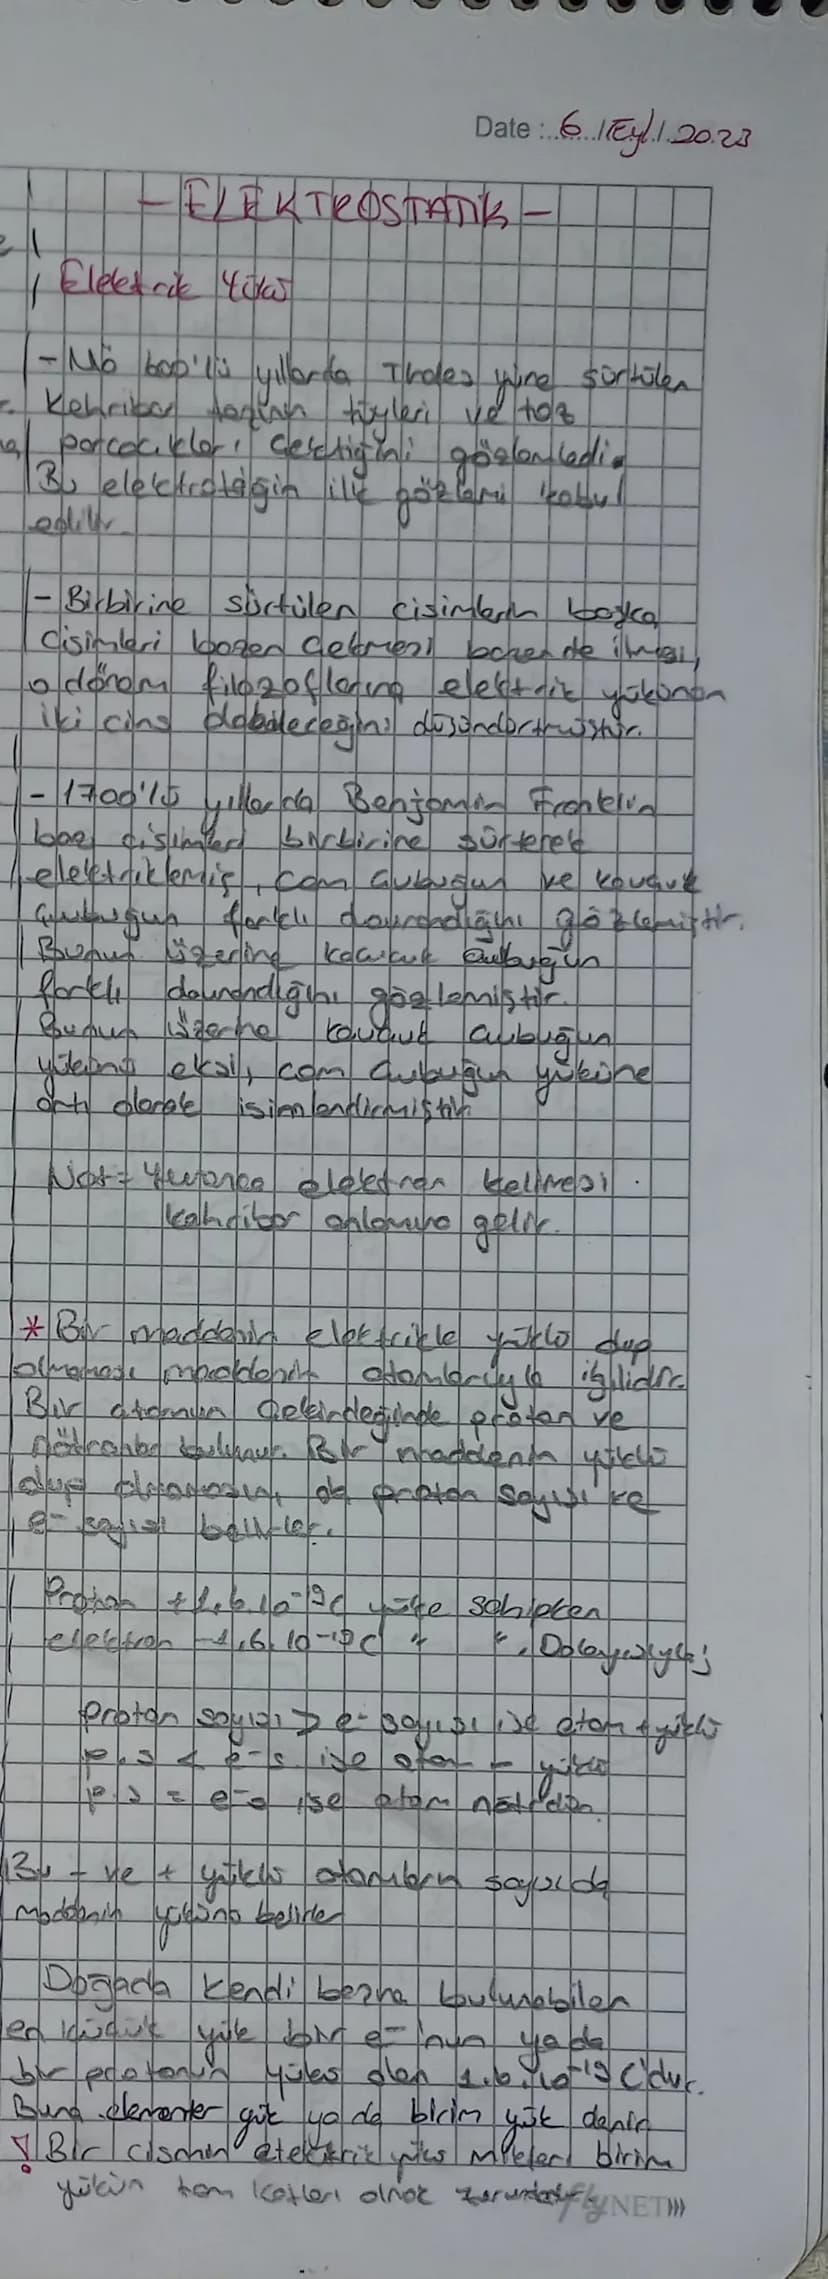 Date : 6 / Eyl / 2023
- ELEKTROSTATİK -
Elektrik Yükü
- MÖ 600'lü yıllarda Thales yüne sürtülen
Kehribar taşının tüyleri ve toz
parçacıkları çektiğini gözlemledi.
Bu elektrolağın ilk gözlemi kabul
edilir.
- Birbirine sürtülen cisimlerin başka
cisimleri bazen çekmesi bazen de itmesi,
o dönem filozoflarına elektrik yükünün
iki cins olabileceğini düşündürtmüştür.
- 1700'lü yıllarda Benjamin Franklin
bazı cisimleri birbirine sürterek
elektriklemiş, cam çubuğun ve kauçuk
çubuğun farklı davrandığını gözlemiştir.
Bunun üzerine kauçuk çubuğun
farklı davrandığını gözlemiştir.
Bunun üzerine kauçuk çubuğun
yüküne eksi, cam çubuğun yüküne
artı olarak isimlendirmiştir.
Not= Yunanca elektron kelimesi
kehribar anlamına gelir.
* Bir maddenin elektrikle yüklü olup
olmaması maddenin atomlarıyla ilgilidir.
Bir atomun çekirdeğinde proton ve
nötronlar bulunur. Bir maddenin yüklü
olup olmamasını da proton sayısı ve
e⁻ sayısı belirler.
Proton +1,6.10⁻¹⁹C yüke sahipken
elektron -1,6.10⁻¹⁹C " ". Dolayısıyla;
proton sayısı > e⁻ sayısı ise atom + yüklü
p.s < e⁻s ise atom - yüklü
p.s = e⁻s ise atom nötrdür.
Bu - ve + yüklü atomların sayısı da
maddenin yükünü belirler
Doğada kendi başına bulunabilen
en küçük yük bir e⁻'nun ya da
bir protonun yükü olan 1.6.10⁻¹⁹ C'dur.
Buna elementer yük ya da birim yük denir
! Bir cismin elektrik yükü miktarı birim
yükün tam katları olmak zorundadır
flyNET)))